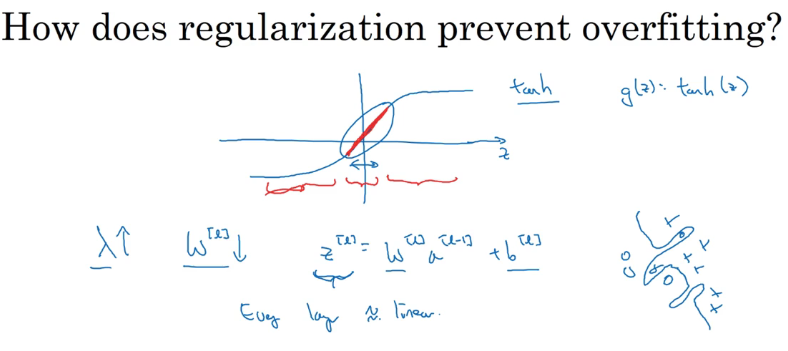 How does regularization prevent overfitting?
tanh g(z) = tanh(z)
z
λ↑ W^[l]↓ z^[l] = W^[l] a^[l-1] + b^[l]
Every layer ≈ linear.